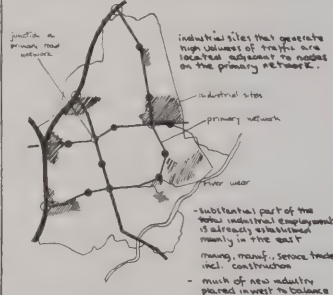 junction on
primary road
network
industrial sites that generate
high volumes of traffic are
located adjacent to nodes
on the primary network.
industrial sites
primary network
River wear
- substantial part of the
total industrial employment
is already established
mainly in the east
mining, manuf., service trade
incl. construction
- much of new industry
placed in west to balance